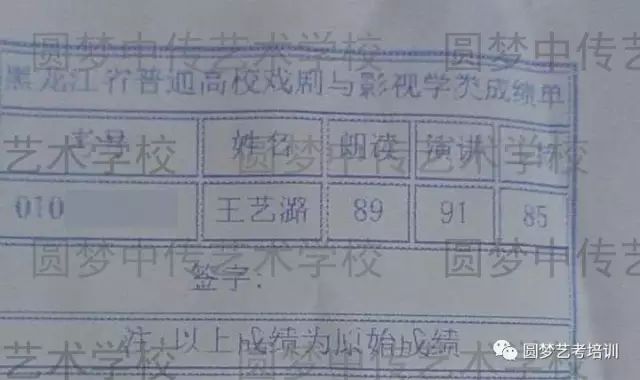 圆梦中传艺术学校 圆梦中传
黑龙江省普通高校戏剧与影视学类成绩单
考号 姓名 朗读 演讲
艺术学校 圆梦中传艺术学校
010 王艺潞 89 91 85
圆梦中传艺术学校 圆梦中传
签字:
注 以上成绩为原始成绩
艺术学校 圆梦中传艺术学校
圆梦艺考培训